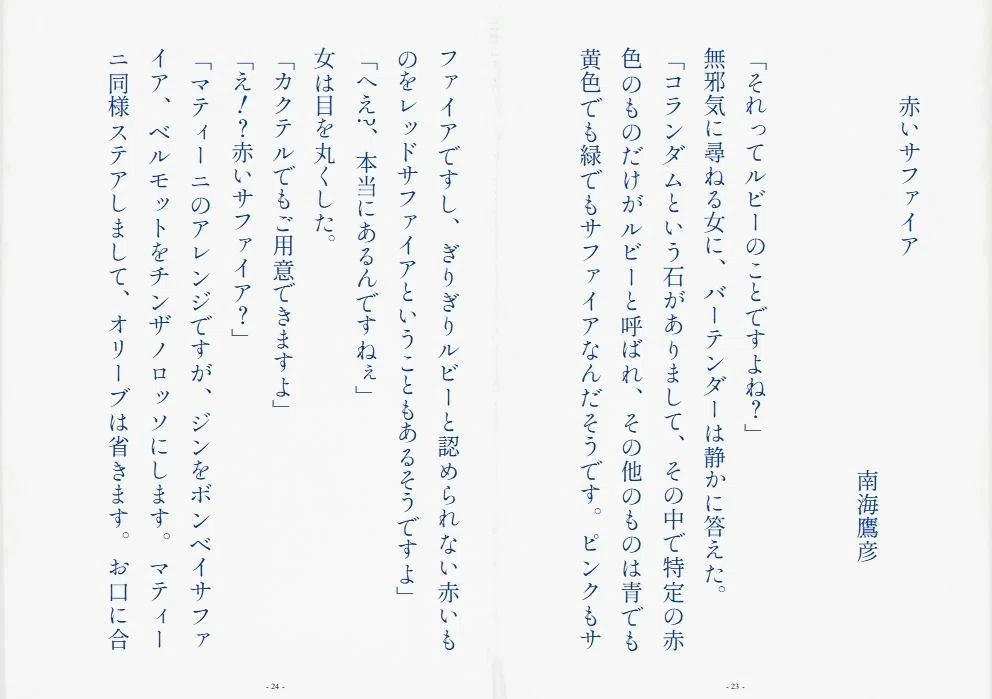 赤いサファイア
南海鷹彦
「それってルビーのことですよね?」
無邪気に尋ねる女に、バーテンダーは静かに答えた。
「コランダムという石がありまして、その中で特定の赤
色のものだけがルビーと呼ばれ、その他のものは青でも
黄色でも緑でもサファイアなんだそうです。ピンクもサ
- 23 -
ファイアですし、ぎりぎりルビーと認められない赤いも
のをレッドサファイアということもあるそうですよ」
「へえ〜、本当にあるんですねぇ」
女は目を丸くした。
「カクテルでもご用意できますよ」
「え!?赤いサファイア?」
「マティーニのアレンジですが、ジンをボンベイサファ
イア、ベルモットをチンザノロッソにします。マティー
ニ同様ステアしまして、オリーブは省きます。お口に合
- 24 -